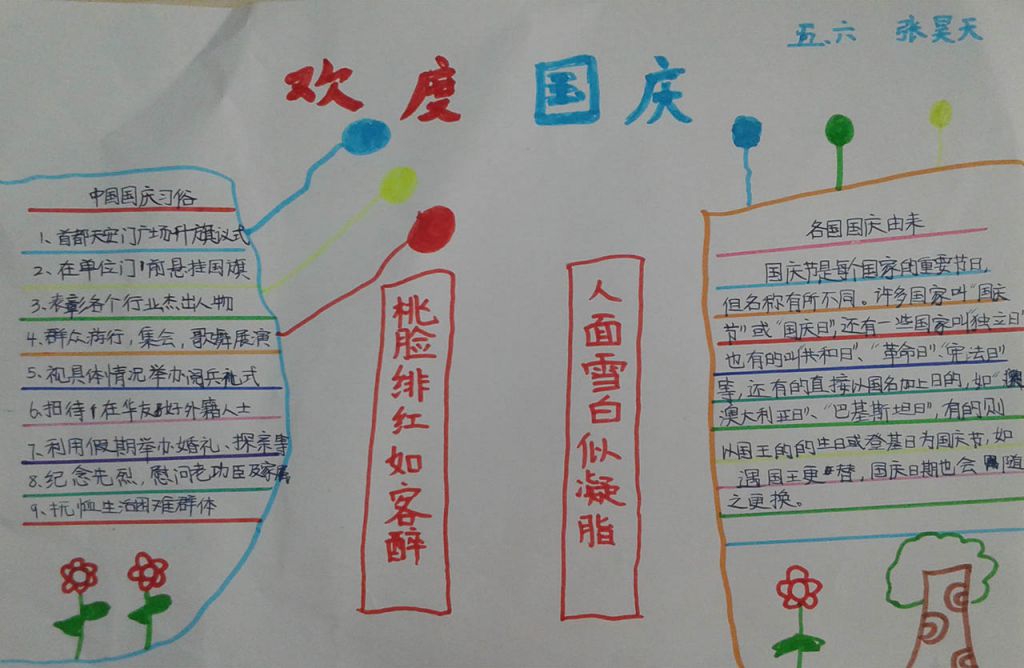 五.六 张昊天
欢度国庆
中国国庆习俗
1、首都天安门广场升旗仪式
2、在单位门前悬挂国旗
3、表彰各个行业杰出人物
4、群众游行，集会，歌舞展演
5、视具体情况举办阅兵礼式
6、招待在华友好外籍人士
7、利用假期举办婚礼、探亲等
8、纪念先烈，慰问老功臣及家属
9、抚恤生活困难群体
桃脸绯红如客醉
人面雪白似凝脂
各国国庆由来
国庆节是每个国家的重要节日，
但名称有所不同。许多国家叫"国庆
节"或"国庆日"，还有一些国家叫"独立日"
也有的叫"共和日"、"革命日"、"宪法日"
等，还有的直接以国名加上日的，如"澳
澳大利亚日"、"巴基斯坦日"，有的则
以国王的的生日或登基日为国庆节，如
遇国王更替，国庆日期也会随
之更换。